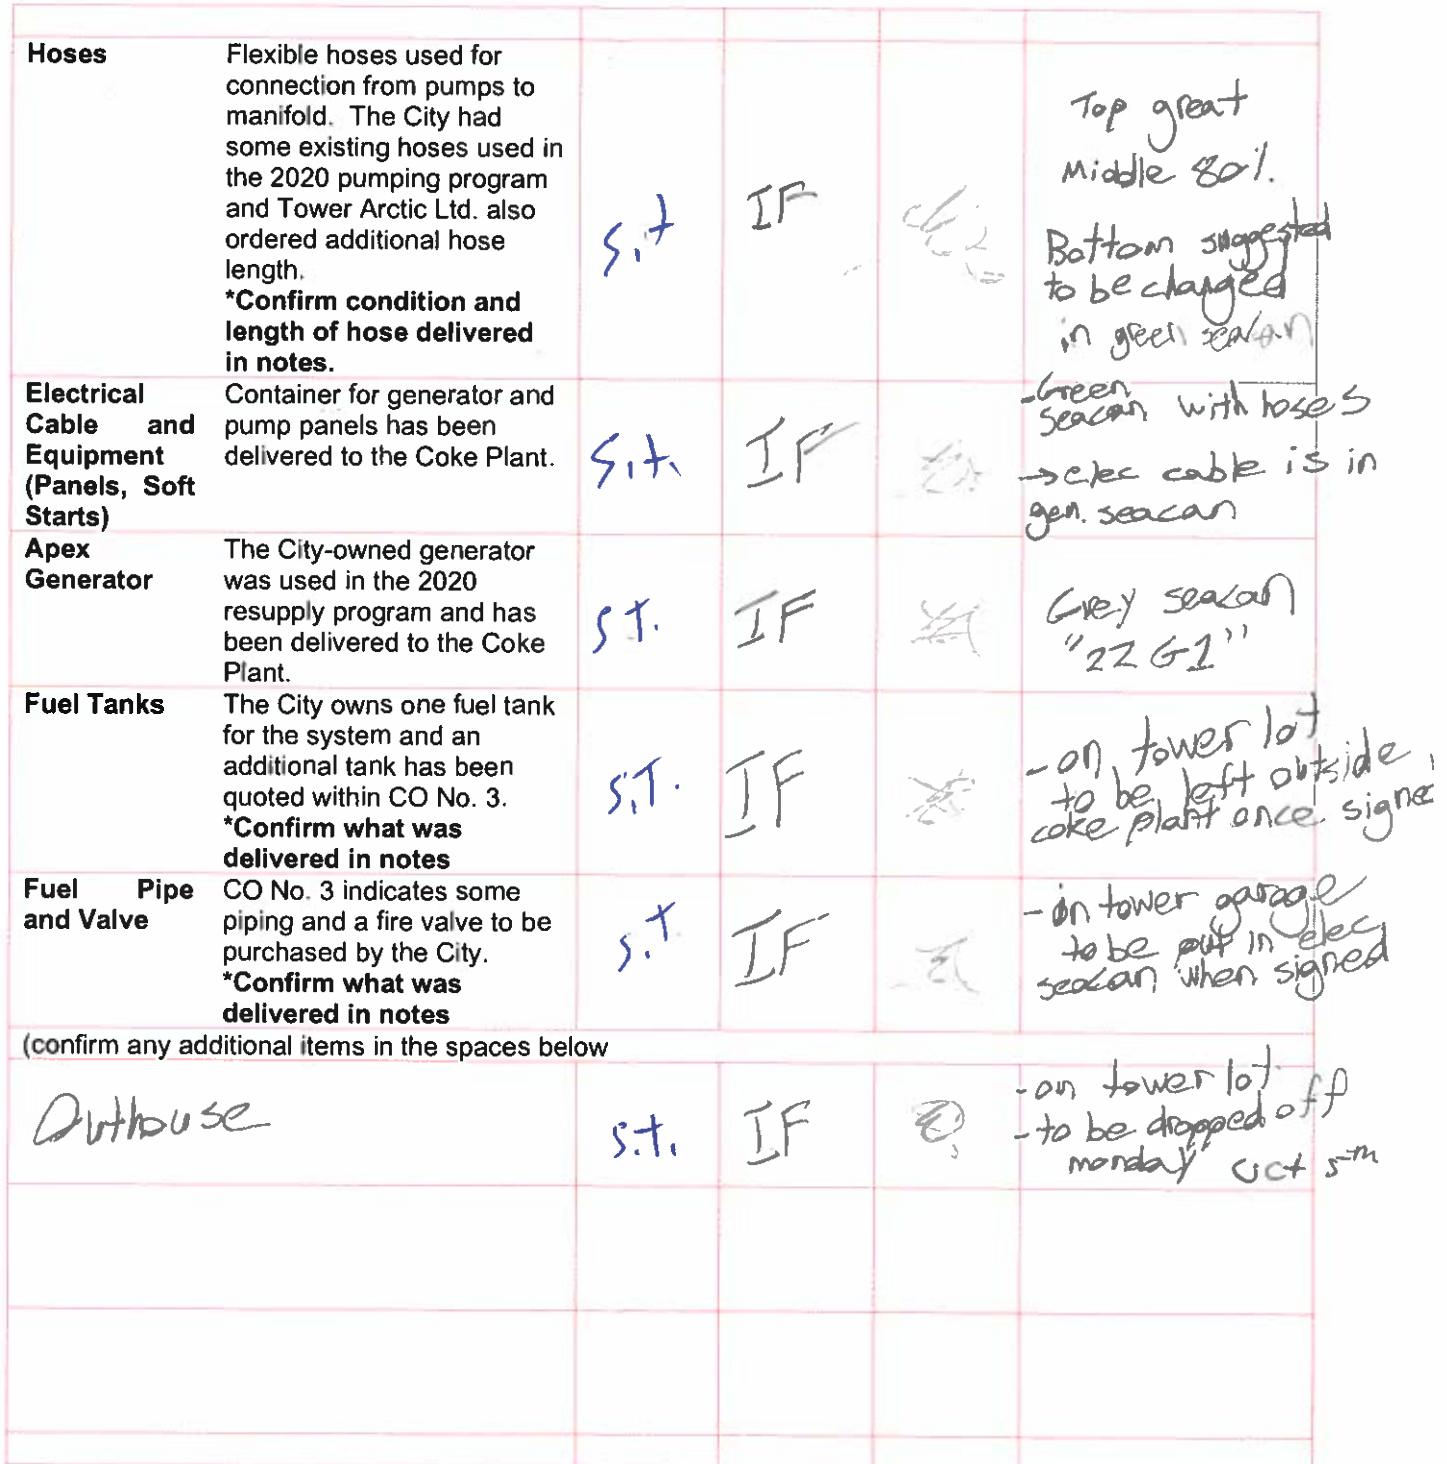 Hoses
Flexible hoses used for
connection from pumps to
manifold. The City had
some existing hoses used in
the 2020 pumping program
and Tower Arctic Ltd. also
ordered additional hose
length.
*Confirm condition and
length of hose delivered
in notes.
S.t
IF
Top great
Middle 80%.
Bottom suggested
to be changed
in green seacan
Electrical
Cable and
Equipment
(Panels, Soft
Starts)
Container for generator and
pump panels has been
delivered to the Coke Plant.
S.t.
IF
-Green
seacan with hoses
→ elec cable is in
gen. seacan
Apex
Generator
The City-owned generator
was used in the 2020
resupply program and has
been delivered to the Coke
Plant.
S T.
IF
Grey seacan
"22 G1"
Fuel Tanks
The City owns one fuel tank
for the system and an
additional tank has been
quoted within CO No. 3.
*Confirm what was
delivered in notes
S.T.
IF
- on tower lot
to be left outside
coke plant once signe
Fuel Pipe
and Valve
CO No. 3 indicates some
piping and a fire valve to be
purchased by the City.
*Confirm what was
delivered in notes
S.T
IF
- in tower garage
to be put in elec
seacan when signed
(confirm any additional items in the spaces below
Outhouse
S.t.
IF
- on tower lot
- to be dropped off
monday Oct 5th